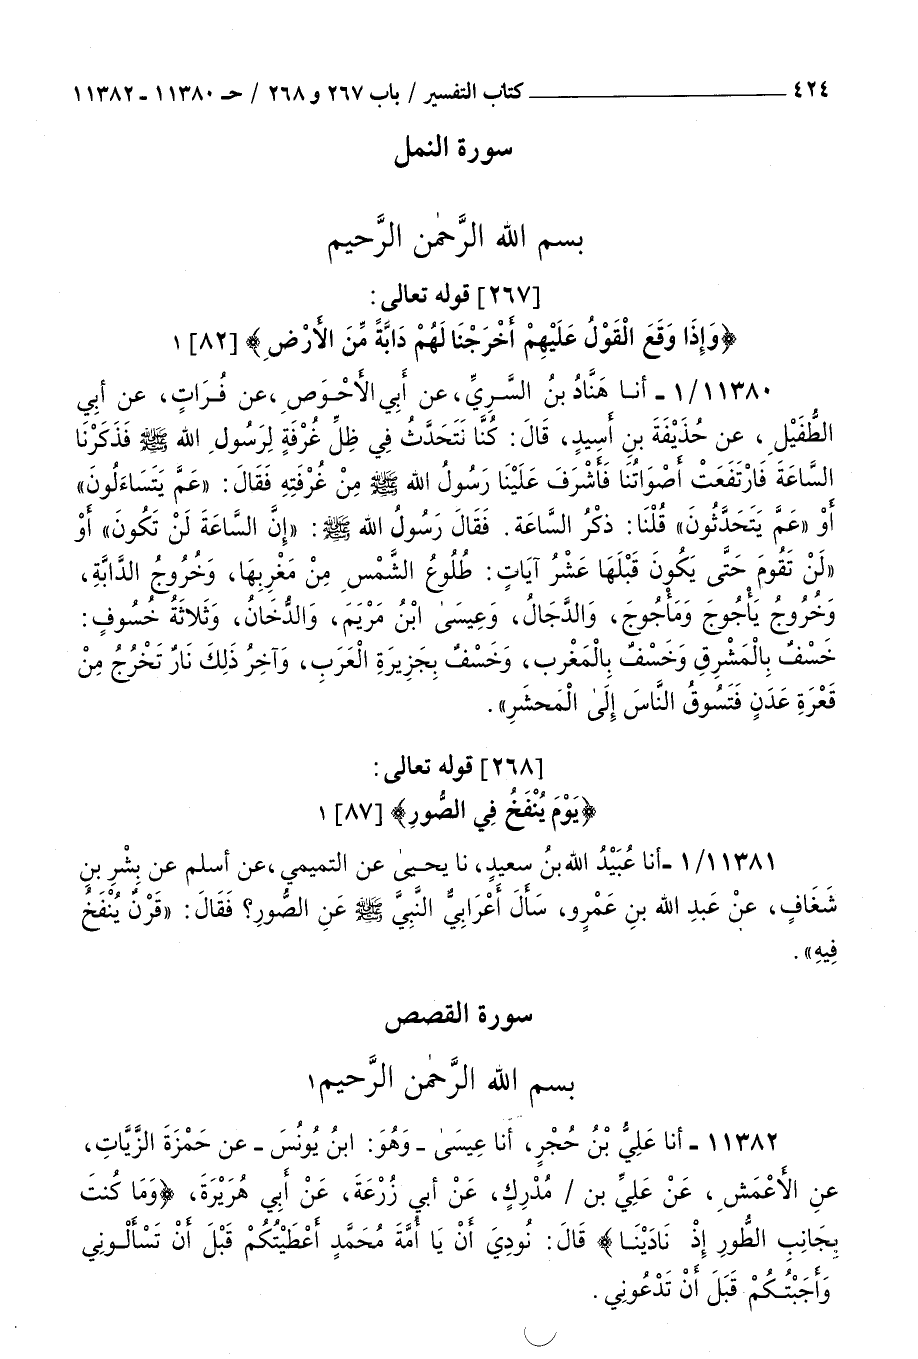 ٤٢٤ ــــــــــــــــــــ كتاب التفسير / باب ٢٦٧ و ٢٦٨ / حـ ١١٣٨٠ - ١١٣٨٢
سورة النمل
بسم الله الرَّحمٰن الرَّحيم
[٢٦٧] قوله تعالى:
﴿وَإِذَا وَقَعَ الْقَوْلُ عَلَيْهِمْ أَخْرَجْنَا لَهُمْ دَابَّةً مِّنَ الْأَرْضِ﴾ [٨٢] ١
١/١١٣٨٠ ـ أنـا هَنَّادُ بنُ السَّـرِيِّ، عن أَبي الأَحْـوَصِ، عن فُـرَاتٍ، عن أبي
الطُّفَيْلِ، عن حُذَيْفَةَ بنِ أَسِيدٍ، قَالَ: كُنَّا نَتَحَدَّثُ فِي ظِلِّ غُرْفَةٍ لِرَسُولِ الله ﷺ فَذَكَرْنَا
السَّاعَةَ فَارْتَفَعَتْ أَصْوَاتُنَا فَأَشْرَفَ عَلَيْنَا رَسُولُ الله ﷺ مِنْ غُرْفَتِهِ فَقَالَ: «عَمَّ يَتَسَاءَلُونَ»
أَوْ «عَمَّ يَتَحَدَّثُونَ» قُلْنَا: ذِكْرُ السَّاعَة. فَقَالَ رَسُولُ الله ﷺ: «إِنَّ السَّاعَةَ لَنْ تَكُونَ» أَوْ
«لَنْ تَقُومَ حَتَّى يَكُونَ قَبْلَهَا عَشْرُ آيَاتٍ: طُلُوعُ الشَّمْسِ مِنْ مَغْرِبِهَا، وَخُرُوجُ الدَّابَّةِ،
وَخُرُوجُ يَأْجُوجَ وَمَأْجُوجَ، وَالدَّجَالُ، وَعِيسَىٰ ابْنُ مَرْيَمَ، وَالدُّخَانُ، وَثَلَاثَةُ خُسُوفٍ:
خَسْفٌ بِالْمَشْرِقِ وَخَسْفٌ بِالْمَغْرِبِ، وَخَسْفٌ بِجَزِيرَةِ الْعَرَبِ، وَآخِرُ ذَلِكَ نَارٌ تَخْرُجُ مِنْ
قَعْرَةِ عَدَنٍ فَتَسُوقُ النَّاسَ إِلَىٰ الْمَحْشَرِ».
[٢٦٨] قوله تعالى:
﴿يَوْمَ يُنْفَخُ فِي الصُّورِ﴾ [٨٧] ١
١/١١٣٨١ ـ أنا عُبَيْدُ الله بنُ سعيدٍ، نا يحيىٰ عن التميمي، عن أسلم عن بِشْرِ بنِ
شَغَافٍ، عنْ عَبدِ الله بنِ عَمْرٍو، سَأَلَ أَعْرَابِيٌّ النَّبِيَّ ﷺ عَنِ الصُّورِ؟ فَقَالَ: «قَرْنٌ يُنْفَخُ
فِيهِ».
سورة القصص
بسم الله الرَّحمٰن الرَّحيم١
١١٣٨٢ ـ أنا عَلِيُّ بْنُ حُجْرٍ، أنا عِيسَىٰ ـ وَهُوَ: ابنُ يُونُسَ ـ عن حَمْزَةَ الزَّيَّاتِ،
عنِ الأَعْمَشِ، عَنْ عَلِيِّ بن / مُدْرِكٍ، عَنْ أبي زُرْعَةَ، عَنْ أَبِي هُرَيْرَةَ، ﴿وَمَا كُنتَ
بِجَانِبِ الطُّورِ إِذْ نَادَيْنَـا﴾ قَالَ: نُودِيَ أَنْ يَا أُمَّةَ مُحَمَّدٍ أَعْطَيْتُكُمْ قَبْلَ أَنْ تَسْأَلُـونِي
وَأَجَبْتُـكُمْ قَبَلَ أَنْ تَدْعُونِي.